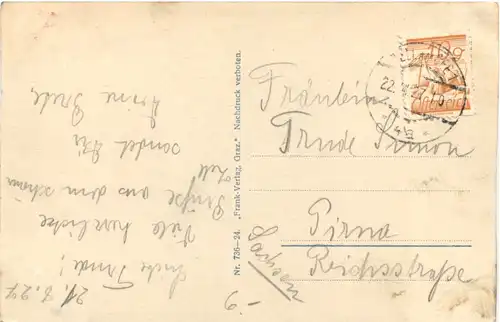 21.8.27
Liebe Trude!
Viele herzliche
Grüße aus dem schönen
Zell
sendet Dir
Nr. 736–24. „Frank-Verlag, Graz.“ Nachdruck verboten.
Fräulein
Trude Simon
Pirna
Reichsstraße
Sachsen
22.
10